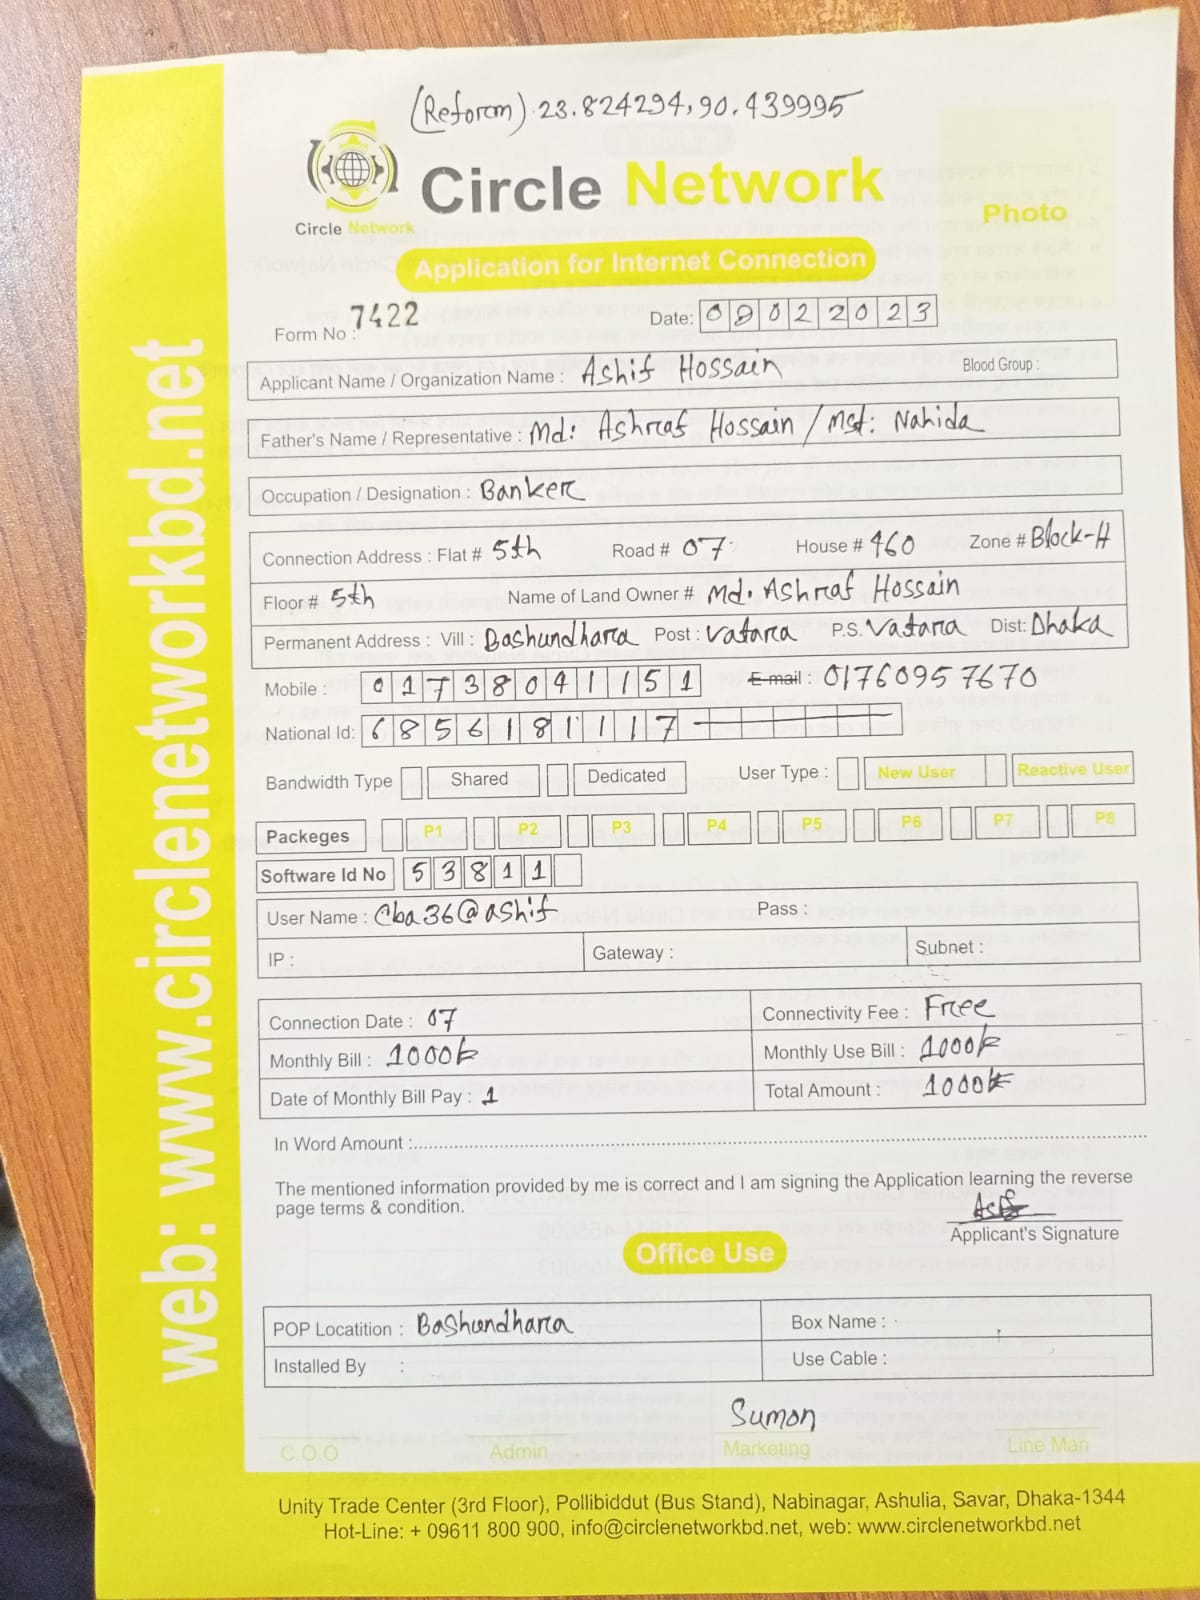 (Reform) 23.824294, 90.439995
Circle Network
Circle Network
Photo
Application for Internet Connection
Form No : 7422
Date: 08022023
Applicant Name / Organization Name : Ashif Hossain Blood Group :
Father's Name / Representative : Md: Ashraf Hossain / Mst: Nahida
Occupation / Designation : Banker
Connection Address : Flat # 5th Road # 07 House # 460 Zone # Block-H
Floor # 5th Name of Land Owner # Md. Ashraf Hossain
Permanent Address : Vill : Bashundhara Post : Vatara P.S. Vatara Dist: Dhaka
Mobile : 01738041151 E-mail : 01760957670
National Id: 6856181117
Bandwidth Type Shared Dedicated User Type : New User Reactive User
Packeges P1 P2 P3 P4 P5 P6 P7 P8
Software Id No 53811
User Name : Cba36@ashif Pass :
IP : Gateway : Subnet :
Connection Date : 07 Connectivity Fee : Free
Monthly Bill : 1000৳ Monthly Use Bill : 1000৳
Date of Monthly Bill Pay : 1 Total Amount : 1000৳
In Word Amount :
The mentioned information provided by me is correct and I am signing the Application learning the reverse
page terms & condition.
Applicant's Signature
Office Use
POP Locatition : Bashundhara Box Name :
Installed By : Use Cable :
Sumon
C.O.O Admin Marketing Line Man
Unity Trade Center (3rd Floor), Pollibiddut (Bus Stand), Nabinagar, Ashulia, Savar, Dhaka-1344
Hot-Line: + 09611 800 900, info@circlenetworkbd.net, web: www.circlenetworkbd.net
web: www.circlenetworkbd.net